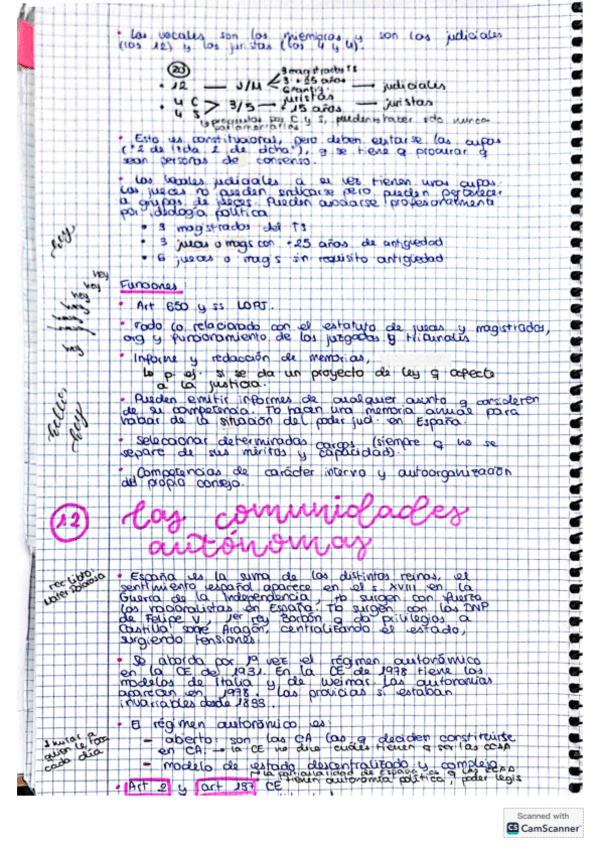 • Los vocales son los miembros y son los judiciales
(los 12) y los juristas (los 4 y 4).
20
3 magistrados TS
• 12 — J/M 3 + 25 años → judiciales
• 4 C
4 S > 3/5 → juristas + 15 años → juristas
↳ propuestos por C y S, pueden haber sido nunca
parlamentarios
• Esto es constitucional, pero deben evitarse las cupos
("2 de izda 2 de dcha"), y se tiene q procurar q
sean personas de consenso.
• Los vocales judiciales a su vez tienen unos cupos.
Los jueces no pueden sindicarse pero pueden pertenecer
a grupos de jueces. Pueden asociarse profesionalmente
por ideología política
• 3 magistrados del TS
• 3 jueces o mags con +25 años de antigüedad
• 6 jueces o mag's sin requisito antigüedad
hey
Funciones
hey
• Art 650 y ss LOPJ.
• Todo lo relacionado con el estatuto de jueces y magistrados,
org y funcionamiento de los juzgados y tribunales
• Informe y redacción de memorias,
↳ p ej. si se da un proyecto de ley q afecte
a la justicia.
• Pueden emitir informes de cualquier asunto q consideren
de su competencia. Tb hacen una memoria anual para
hablar de la situación del poder jud. en España.
hello,
hey
• Seleccionar determinados cargos (siempre q no se
separe de sus méritos y capacidad).
• Competencias de carácter interno y autoorganización
del propio consejo.
12 Las comunidades
autónomas
• España es la suma de los distintos reinos, el
sentimiento español aparece en el s. XVIII en la
Guerra de la Independencia, tb surgen con fuerza
los nacionalistas en España. Tb surgen con los DNP
de Felipe V, 1er rey Borbón q da privilegios a
Castilla sobre Aragón, centralizando el estado,
surgiendo tensiones.
• Se aborda por 1ª vez el régimen autonómico
en la CE de 1931. En la CE de 1978 tiene los
modelos de Italia y de Weimar. Las autonomías
aparecen en 1978. Las provicias si estaban
invariables desde 1833.
• El régimen autonómico es:
– abierto: son las CA las q deciden constituirse
en CA. → la CE no dice cuáles tienen q ser las CCAA
– modelo de estado descentralizado y complejo
↳ la particularidad de España es q las CCAA
tienen autonomía política, poder legis
cada día
• Art 2 y art 137 CE
Scanned with
CS CamScanner